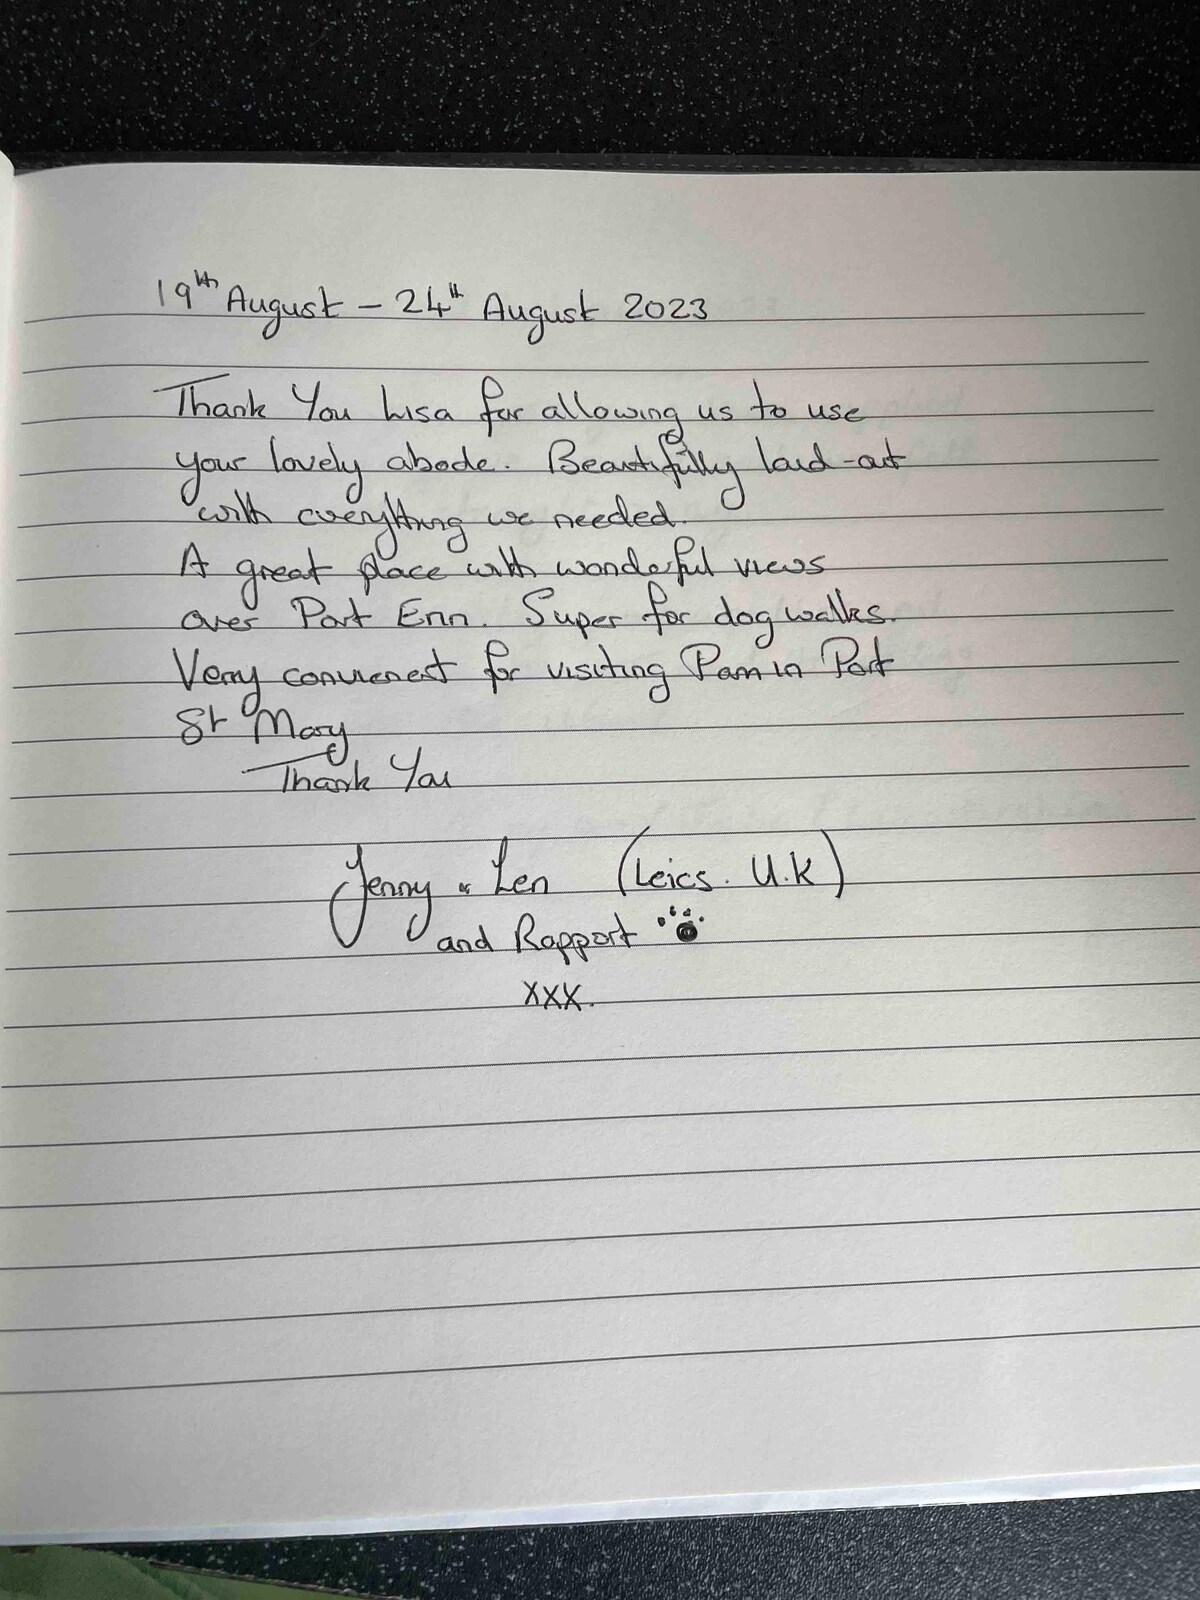 19th August – 24th August 2023
Thank You Lisa for allowing us to use
your lovely abode. Beautifully laid-out
with everything we needed.
A great place with wonderful views
over Port Erin. Super for dog walks.
Very convienent for visiting Pam in Port
St Mary
Thank You
Jenny & Len (Leics. U.K)
and Rapport
xxx.